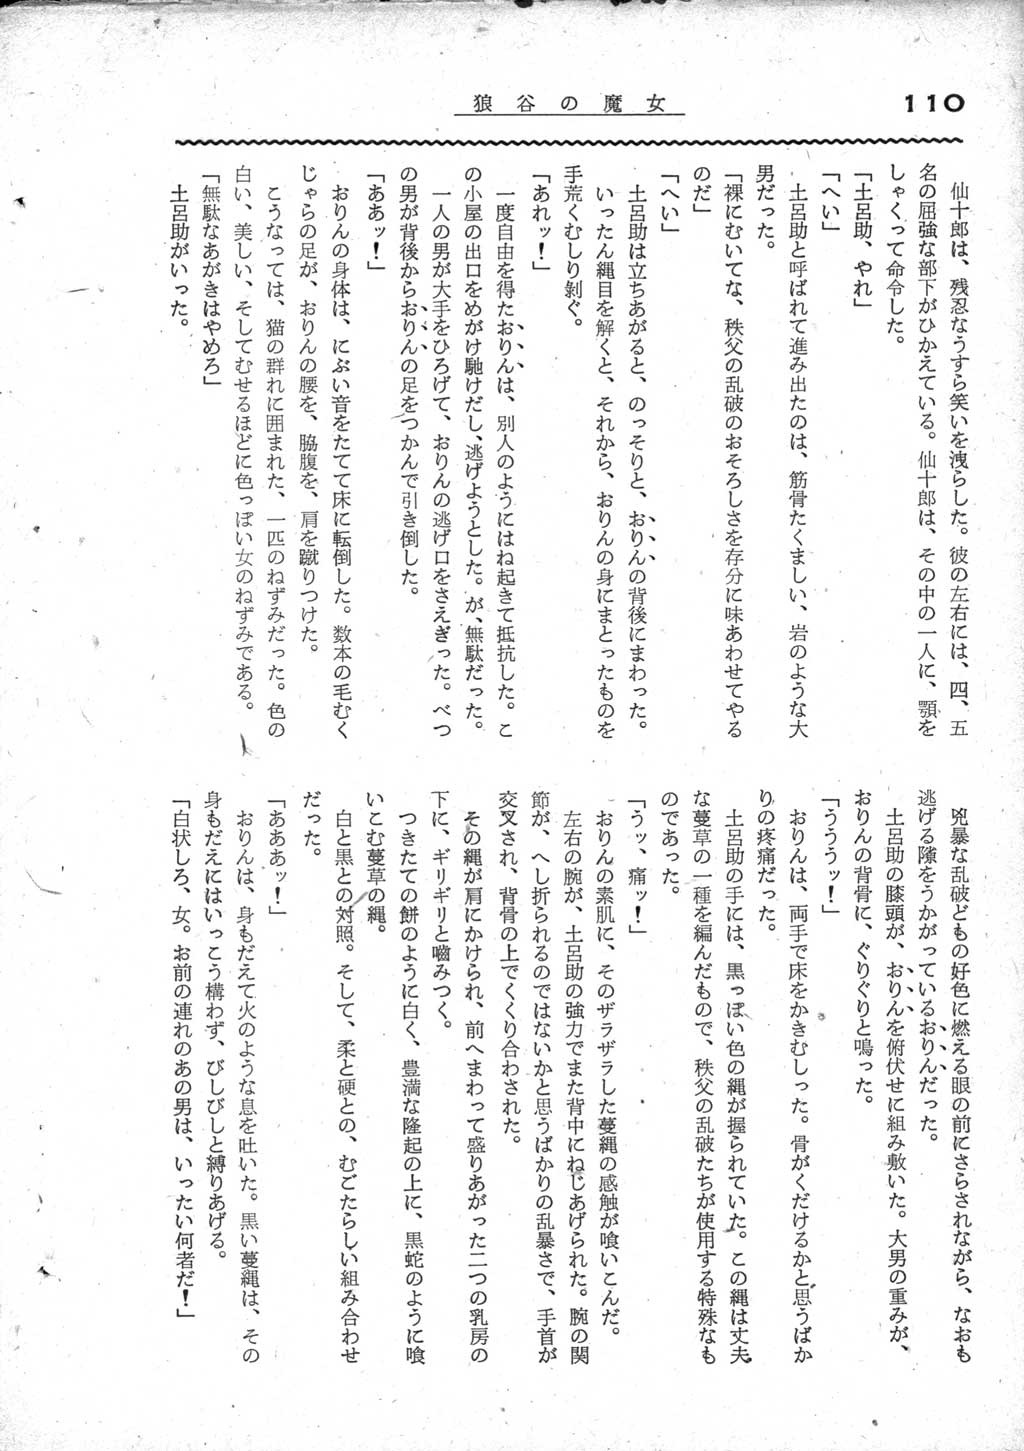 狼谷の魔女
110
仙十郎は、残忍なうすら笑いを洩らした。彼の左右には、四、五
名の屈強な部下がひかえている。仙十郎は、その中の一人に、顎を
しゃくって命令した。
「土呂助、やれ」
「へい」
土呂助と呼ばれて進み出たのは、筋骨たくましい、岩のような大
男だった。
「裸にむいてな、秩父の乱破のおそろしさを存分に味あわせてやる
のだ」
「へい」
土呂助は立ちあがると、のっそりと、おりんの背後にまわった。
いったん縄目を解くと、それから、おりんの身にまとったものを
手荒くむしり剝ぐ。
「あれッ！」
一度自由を得たおりんは、別人のようにはね起きて抵抗した。こ
の小屋の出口をめがけ馳けだし、逃げようとした。が、無駄だった。
一人の男が大手をひろげて、おりんの逃げ口をさえぎった。べつ
の男が背後からおりんの足をつかんで引き倒した。
「ああッ！」
おりんの身体は、にぶい音をたてて床に転倒した。数本の毛むく
じゃらの足が、おりんの腰を、脇腹を、肩を蹴りつけた。
こうなっては、猫の群れに囲まれた、一匹のねずみだった。色の
白い、美しい、そしてむせるほどに色っぽい女のねずみである。
「無駄なあがきはやめろ」
土呂助がいった。
兇暴な乱破どもの好色に燃える眼の前にさらされながら、なおも
逃げる隙をうかがっているおりんだった。
土呂助の膝頭が、おりんを俯伏せに組み敷いた。大男の重みが、
おりんの背骨に、ぐりぐりと鳴った。
「うううッ！」
おりんは、両手で床をかきむしった。骨がくだけるかと思うばか
りの疼痛だった。
土呂助の手には、黒っぽい色の縄が握られていた。この縄は丈夫
な蔓草の一種を編んだもので、秩父の乱破たちが使用する特殊なも
のであった。
「うッ、痛ッ！」
おりんの素肌に、そのザラザラした蔓縄の感触が喰いこんだ。
左右の腕が、土呂助の強力でまた背中にねじあげられた。腕の関
節が、へし折られるのではないかと思うばかりの乱暴さで、手首が
交叉され、背骨の上でくくり合わされた。
その縄が肩にかけられ、前へまわって盛りあがった二つの乳房の
下に、ギリギリと嚙みつく。
つきたての餅のように白く、豊満な隆起の上に、黒蛇のように喰
いこむ蔓草の縄。
白と黒との対照。そして、柔と硬との、むごたらしい組み合わせ
だった。
「あああッ！」
おりんは、身もだえて火のような息を吐いた。黒い蔓縄は、その
身もだえにはいっこう構わず、びしびしと縛りあげる。
「白状しろ、女。お前の連れのあの男は、いったい何者だ！」